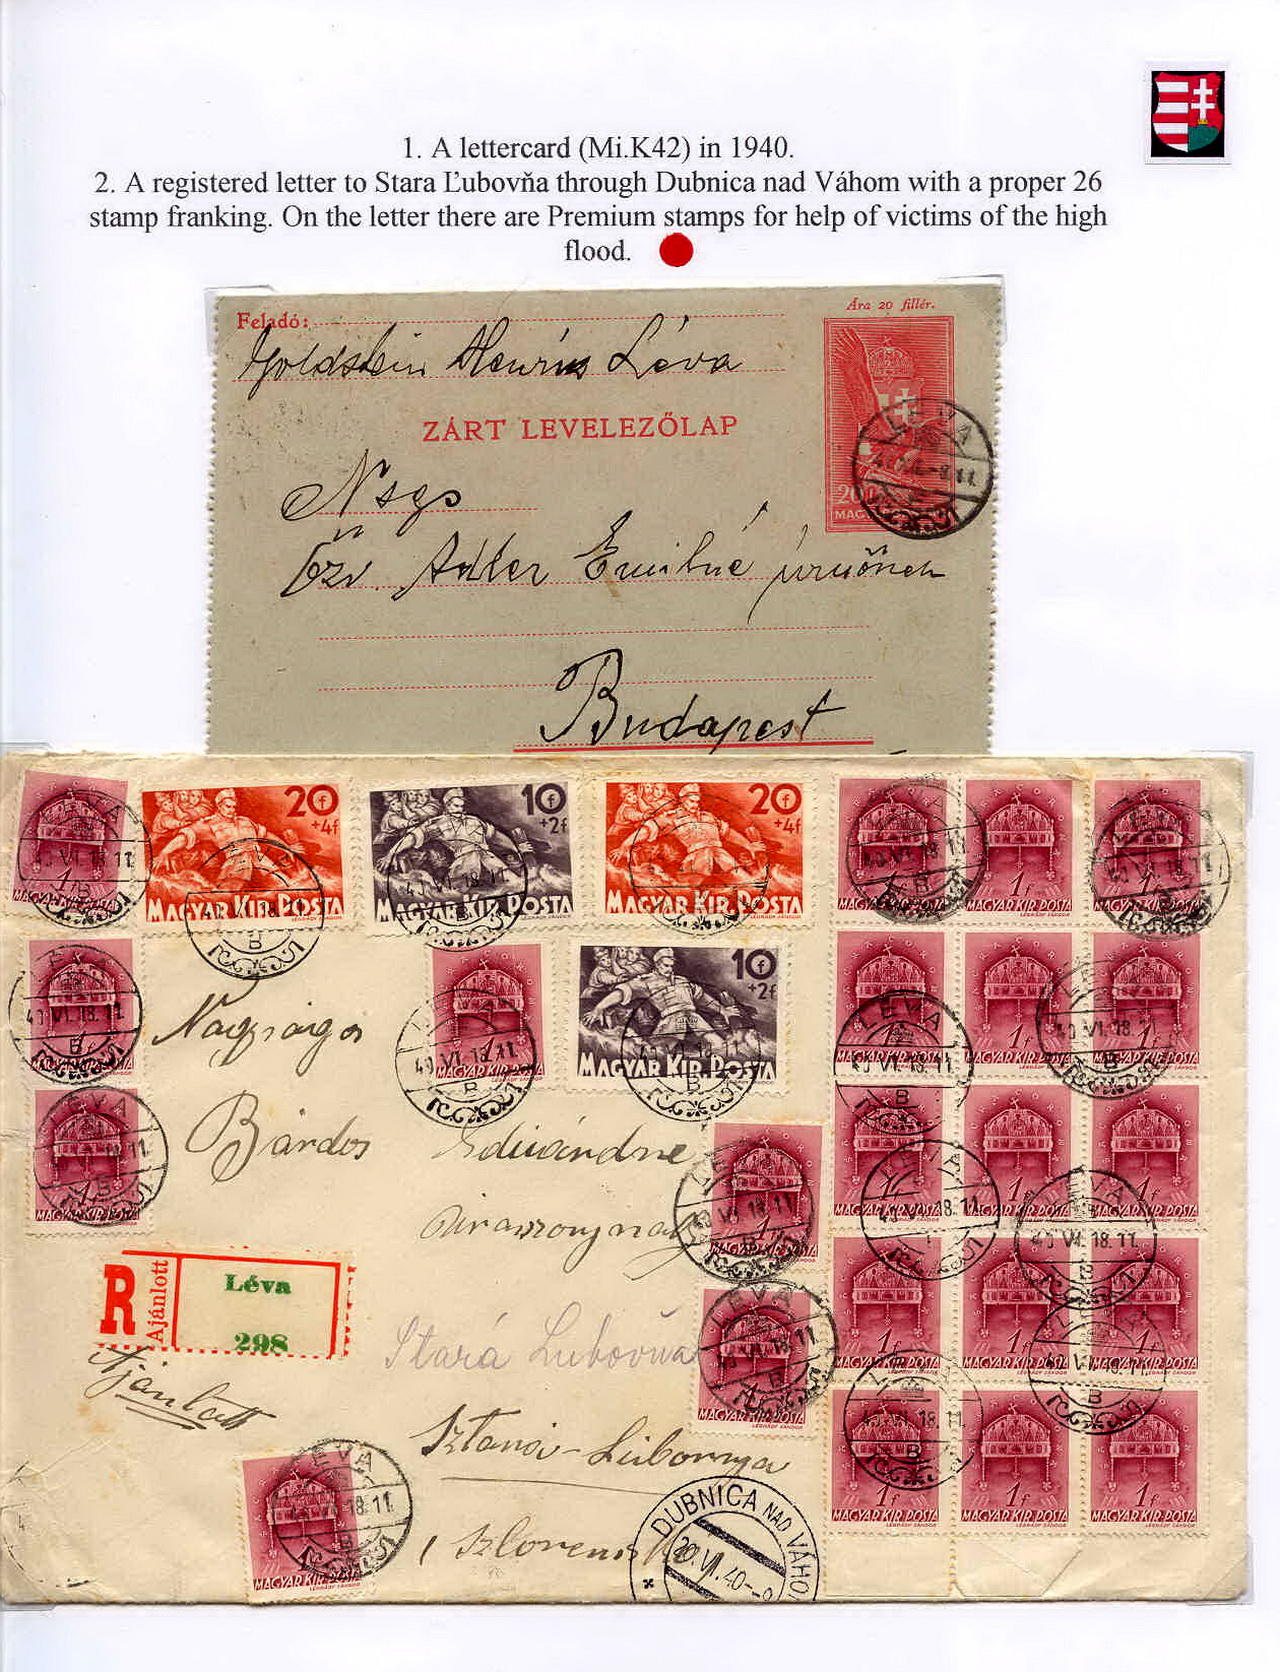 1. A lettercard (Mi.K42) in 1940.
2. A registered letter to Stara Ľubovňa through Dubnica nad Váhom with a proper 26
stamp franking. On the letter there are Premium stamps for help of victims of the high
flood.
Ára 20 fillér.
Feladó:
Goldstein Henrik Léva
ZÁRT LEVELEZŐLAP
LÉVA
Nsgs
20
özv. Adler Emilné úrnőnek
Budapest
20f +4f
MAGYAR KIR. POSTA
10f +2f
MAGYAR KIR. POSTA
20f +4f
MAGYAR KIR. POSTA
1f
MAGYAR KIR. POSTA
LÉVA
40 VI. 18. 11.
B
Nagyságos
10f +2f
MAGYAR KIR. POSTA
Bárdos Edvárdné
Úrasszonynak
R
Ajánlott
Léva
298
Stará Lubovňa
Ajánlott
Sztará-Lubovnya
DUBNICA NAD VÁHOM
20.VI.40